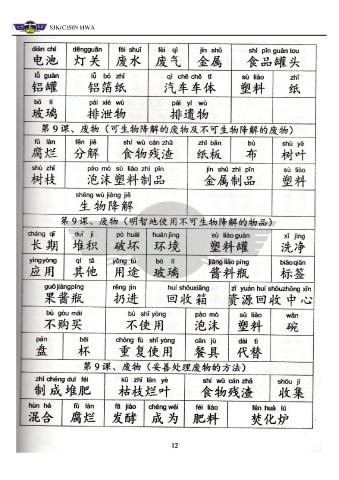 SJK(C)SIN HWA
diàn chí dēngguān fèi shuǐ fèi qì jīn shǔ shí pǐn guàn tou
电池 灯关 废水 废气 金属 食品罐头
lǚ guàn lǚ bó zhǐ qì chē chē tǐ sù liào zhǐ
铝罐 铝箔纸 汽车车体 塑料 纸
bō lí pái xiè wù pái yí wù
玻璃 排泄物 排遗物
第9课、废物（可生物降解的废物及不可生物降解的废物）
fǔ làn fēn jiě shí wù cán zhā zhǐ bǎn bù shù yè
腐烂 分解 食物残渣 纸板 布 树叶
shù zhī pào mò sù liào zhì pǐn jīn shǔ zhì pǐn sù liào
树枝 泡沫塑料制品 金属制品 塑料
shēng wù jiàng jiě
生物降解
第9课、废物（明智地使用不可生物降解的物品）
cháng qī duī jī pò huài huán jìng sù liào guàn xǐ jìng
长期 堆积 破坏 环境 塑料罐 洗净
yìngyòng qí tā yòng tú bō lí jiàng liào píng biāoqiān
应用 其他 用途 玻璃 酱料瓶 标签
guǒ jiàngpíng rēng jìn huí shōuxiāng zī yuán huí shōuzhōng xīn
果酱瓶 扔进 回收箱 资源回收中心
bù gòu mǎi bù shǐ yòng pào mò sù liào wǎn
不购买 不使用 泡沫 塑料 碗
pán bēi chóng fù shǐ yòng cān jù dài tì
盘 杯 重复使用 餐具 代替
第9课、废物（妥善处理废物的方法）
zhì chéng duī féi kū zhī làn yè shí wù cán zhā shōu jí
制成堆肥 枯枝烂叶 食物残渣 收集
hùn hé fǔ làn fā jiào chéng wéi féi liào fén huà lú
混合 腐烂 发酵 成为 肥料 焚化炉
12